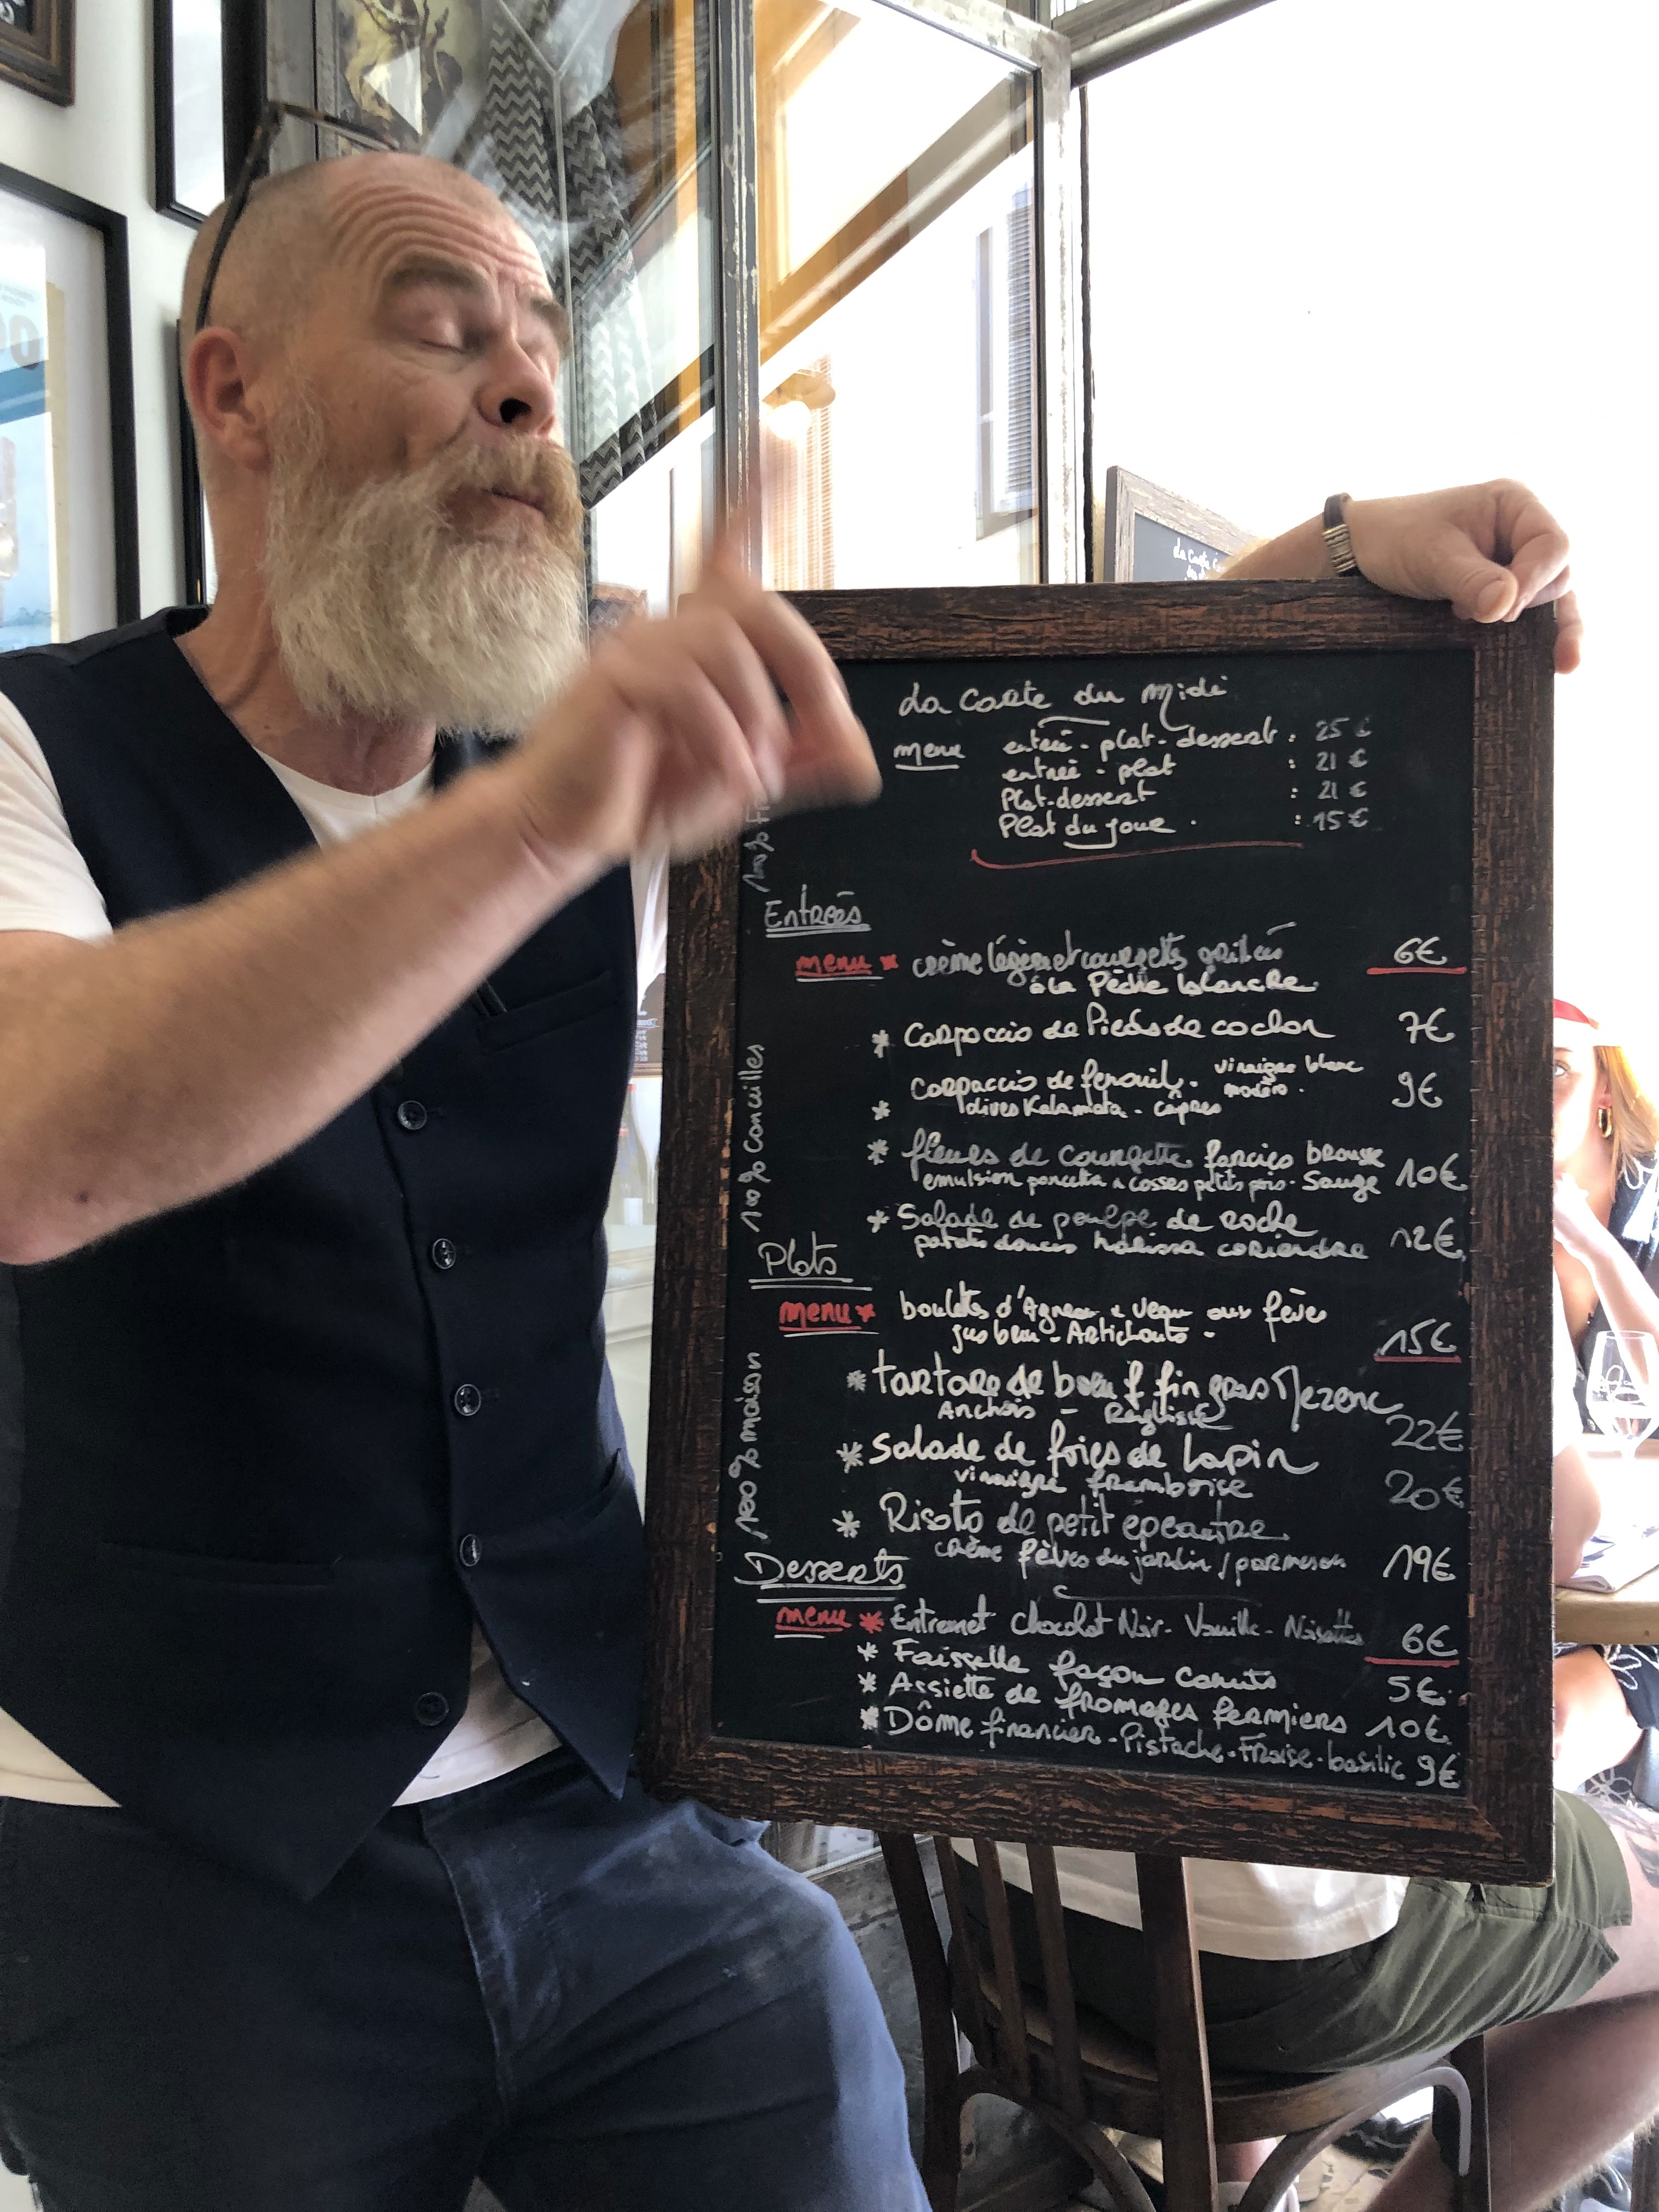 La Carte du Midi
menu entrée - plat - dessert : 25 €
entrée - plat : 21 €
Plat-dessert : 21 €
Plat du jour : 15 €
Entrées
menu * crème légère et courgettes grillées 6€
à la Pêche blanche
* Carpaccio de Pieds de cochon 7€
Carpaccio de fenouil - vinaigre blanc
* olives Kalamata - câpres 9€
* fleurs de courgette farcies brousse
emulsion pancetta & cosses petits pois - Sauge 10€
* Salade de poulpe de roche
patates douces harissa coriandre 12€
Plats
menu * boulettes d'Agneau & veau aux fèves
jus brun - Artichauts - 15€
* tartare de bœuf fin gras Mezenc
Anchois - Réglisse 22€
* Salade de foies de lapin
vinaigre framboise 20€
* Risotto de petit épeautre
crème fèves du jardin / parmesan 19€
Desserts
menu * Entremet Chocolat Noir - Vanille - Noisettes 6€
* Faisselle façon canuts 5€
* Assiette de fromages fermiers 10€
* Dôme financier - Pistache - Fraise - basilic 9€
100% canailles
100% maison
La Carte